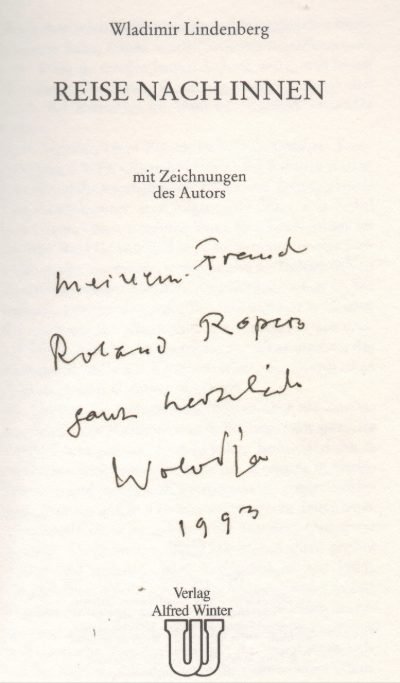 Wladimir Lindenberg
REISE NACH INNEN
mit Zeichnungen
des Autors
meinem Freund
Roland Ropers
ganz herzlich
Wolodja
1993
Verlag
Alfred Winter